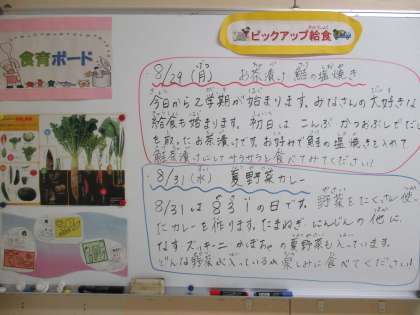 食育ボード
ピックアップ給食
8/29(月) お茶漬け 鮭の塩焼き
今日から2学期が始まります。みなさんの大好きな
給食も始まります。初日は こんぶ かつおぶしでだし
を取ったお茶漬けです。お好みで鮭の塩焼きを入れて
鮭茶漬けにしてサラサラと食べてみてください!
8/31(水) 夏野菜カレー
8/31は831の日です。野菜をたくさん使っ
たカレーを作ります。たまねぎ にんじんの他に、
なす ズッキーニ かぼちゃの夏野菜も入っています。
どんな野菜が入っているか楽しみに食べてください!!